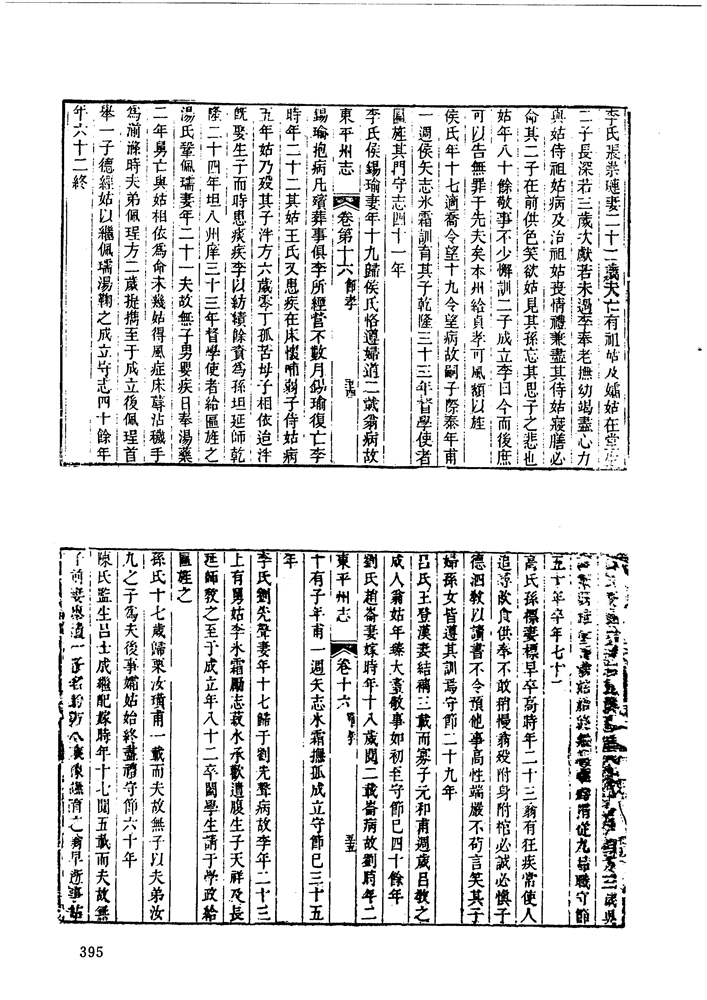 李氏張崇璉妻二十二歲夫亡有祖姑及孀姑在堂
二子長深若三歲次獻若未週李奉老撫幼竭盡心力
與姑侍祖姑病及治祖姑喪情禮兼盡其侍姑寢膳必
命其二子在前供色笑欲姑見其孫忘其思子之悲也
姑年八十餘敬事不少懈訓二子成立李曰今而後庶
可以告無罪于先夫矣本州給貞孝可風額以旌
侯氏年十七適喬令望十九令望病故嗣子際泰年甫
一週侯矢志氷霜訓育其子乾隆三十三年督學使者
匾旌其門守志四十一年
李氏侯錫瑜妻年十九歸侯氏恪遵婦道二載翁病故
東平州志 卷第十六 節孝
錫瑜抱病凡殯葬事俱李所經營不數月錫瑜復亡李
時年二十二其姑王氏又患疾在床懷哺剃子侍姑病
五年姑乃歿其子泮方六歲零丁孤苦母子相依迨泮
旣娶生子而時患痰疾李以紡績餘資爲孫坦延師乾
隆二十四年坦入州庠三十三年督學使者給匾旌之
湯氏鞏佩瓀妻年二十一夫故無子男嬰疾日奉湯藥
二年舅亡與姑相依爲命未幾姑得風症床蓐沾穢手
爲湔滌時夫弟佩珵方二歲提攜至于成立後佩珵首
舉一子德經姑以繼佩瓀湯鞠之成立守志四十餘年
年六十二終
五十年卒年七十
高氏孫標妻標早卒高時年二十三翁有狂疾常使人
追尋飲食供奉不敢稍慢翁歿附身附棺必誠必愼子
德泗敎以讀書不令預他事高性端嚴不苟言笑其子
婦孫女皆遵其訓焉守節二十九年
呂氏王登漢妻結褵三載而寡子元和甫週歲呂敎之
成人翁姑年臻大耋敬事如初至守節已四十餘年
劉氏趙崙妻嫁時年十八歲閱二載崙病故劉時年二
東平州志 卷十六
十有子年甫一週矢志氷霜撫孤成立守節已三十五
年
李氏劉先聲妻年十七歸于劉先聲病故李年二十三
上有舅姑李氷霜勵志菽水承歡遺腹生子天祥及長
延師敎之至于成立年八十二卒闔學生請于學政給
匾旌之
孫氏十七歲歸栗汝璜甫一載而夫故無子以夫弟汝
九之子爲夫後事孀姑始終盡禮守節六十年
陳氏監生呂士成繼配嫁時年十七閱五載而夫故無
395